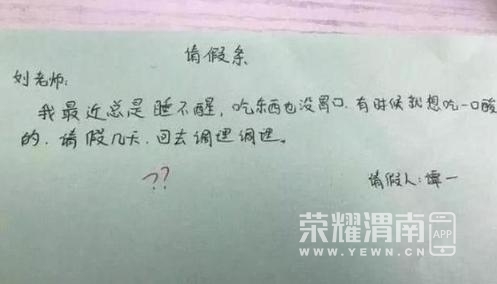 请假条
刘老师:
我最近总是睡不醒，吃东西也没胃口，有时候就想吃一口酸
的，请假几天，回去调理调理。
??
请假人:谭一
荣耀渭南APP
WWW.YEWN.CN